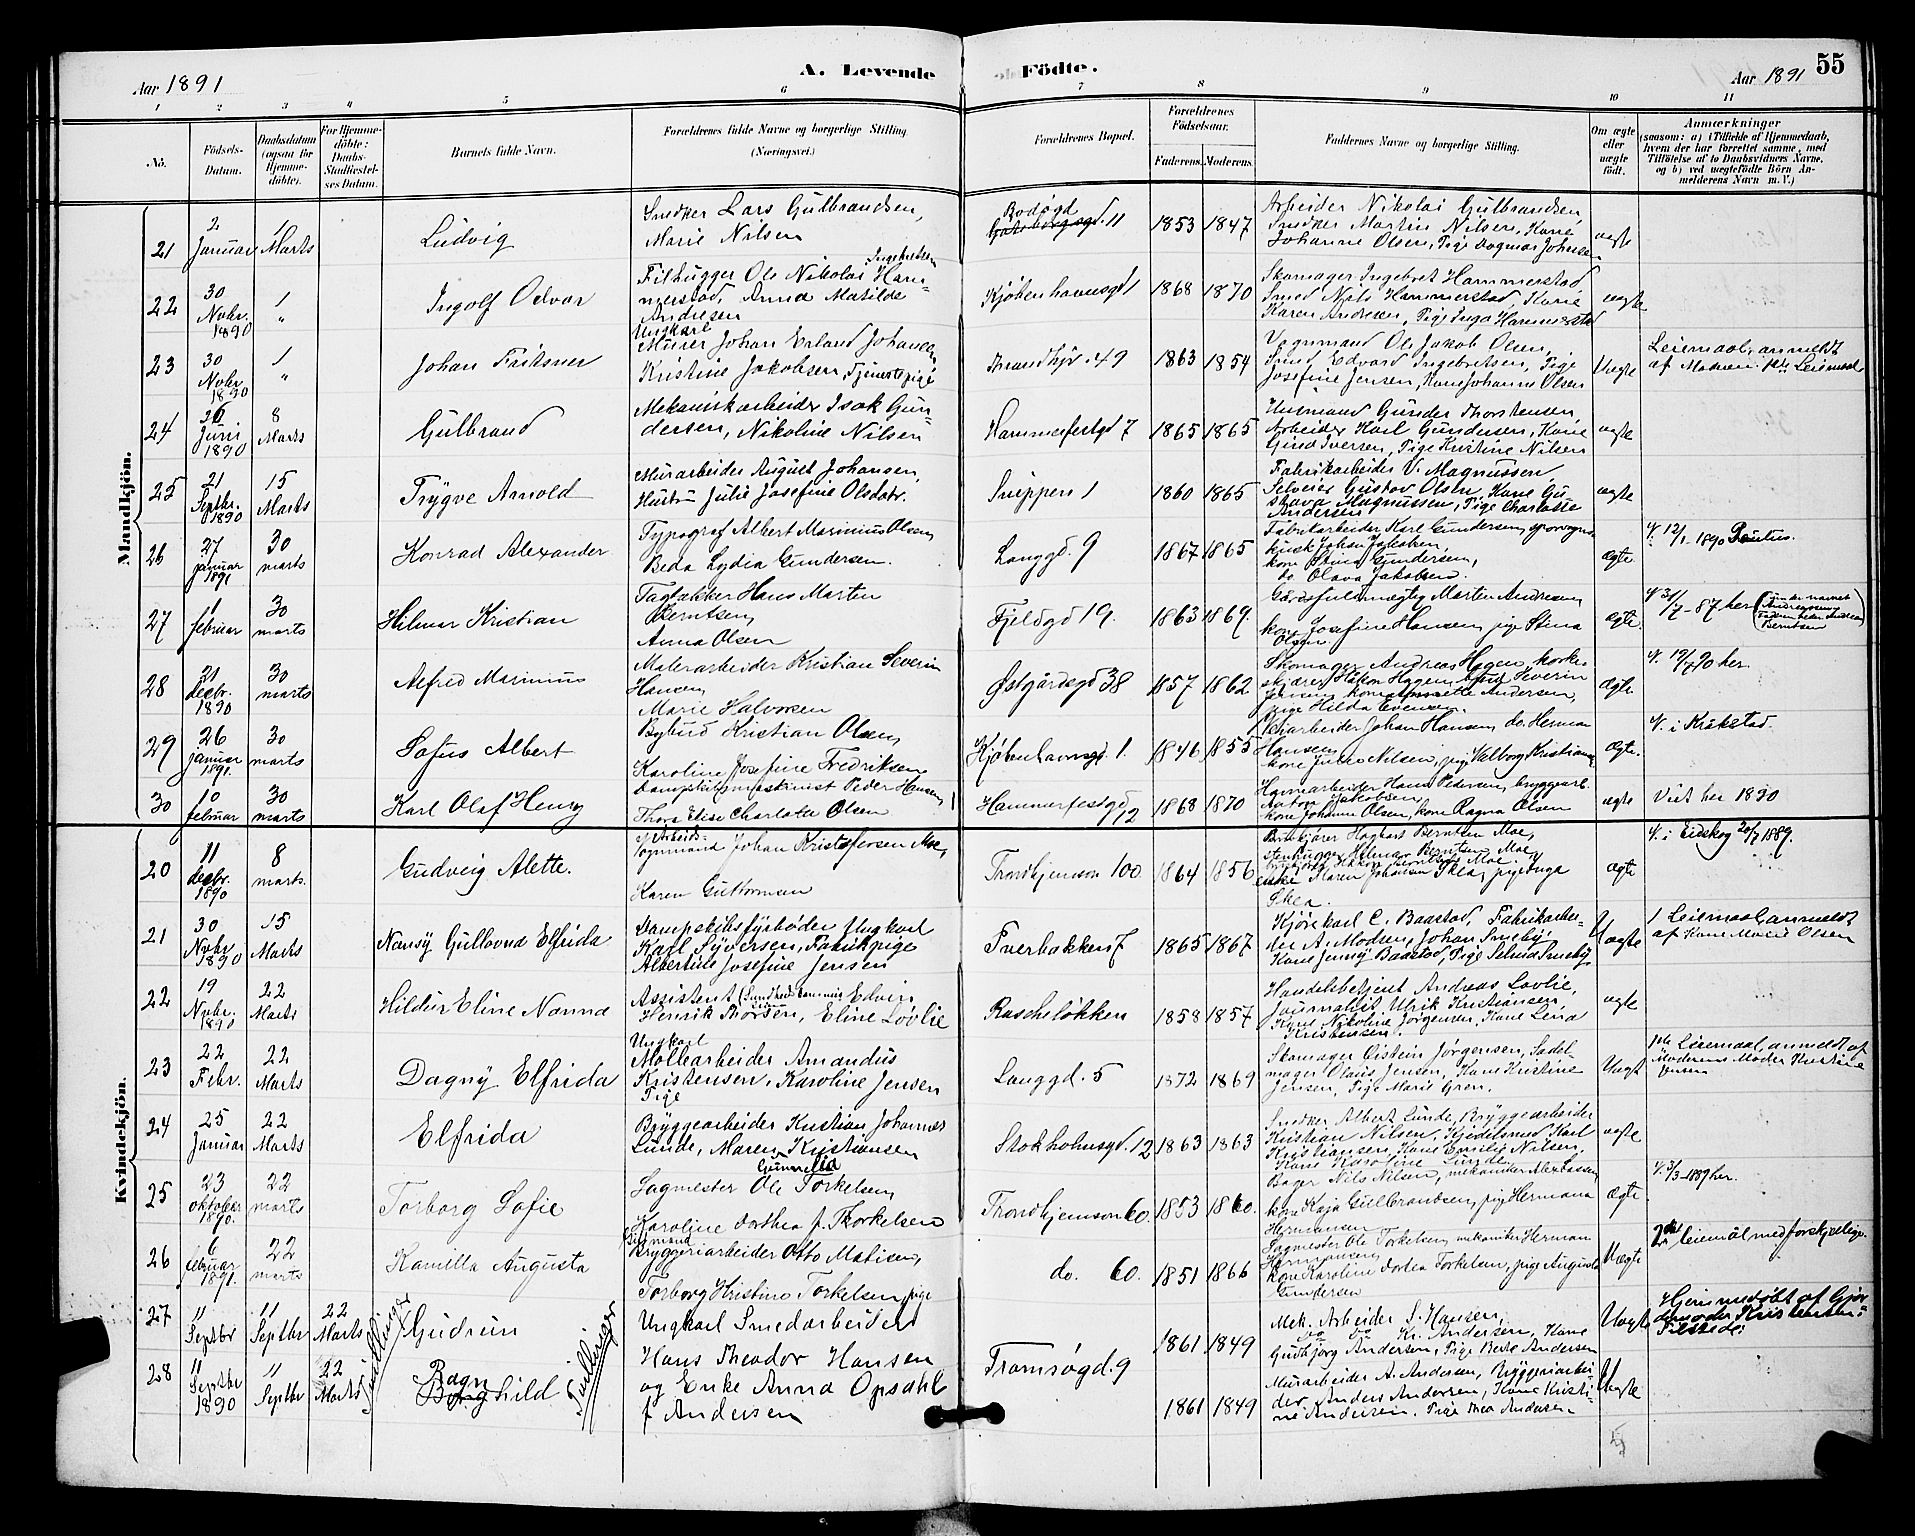 Aar 1891
A. Levende Födte.
Aar 1891
55
1 2 3 4 5 6 7 8 9 10 11
No.
Födsels-Datum.
Daabsdatum (ogsaa för Hjemmedöbte).
For Hjemmedöbte: Daabs-Stadfæstelses Datum.
Barnets fulde Navn.
Forældrenes fulde Navne og borgerlige Stilling. (Næringsvei.)
Forældrenes Bopæl.
Forældrenes Födselsaar.
Faderens. Moderens.
Faddernes Navne og borgerlige Stilling.
Om ægte eller uægte födt.
Anmærkninger
(saasom: a) i Tilfælde af Hjemmedaab, hvem der har forrettet samme, med Tilföielse af to Daabsvidners Navne, og b) ved uægtefödte Börn Anmelderens Navn m. V.)
Mandkjön.
21 2 Januar 1 Marts Ludvig Snedker Lars Gulbrandsen, Marie Nilsen Bodøgd. 11 1853 1847 Arbeider Nikolai Gulbrandsen Snedker Martin Nilsen, Kone Johanne Olsen, Pige Dagmar Johnsen ægte
22 30 Novbr. 1890 1 " Ingolf Odvar Filhugger Ole Nikolai Ingebretsen Hammerstad, Anna Matilde Andresen Kjøbenhavnsgd 1 1868 1870 Skomager Ingebret Hammerstad Smed Nils Hammerstad, Kone Karen Andresen, Pige Inga Hammerstad ægte
23 30 Novbr. 1890 1 " Johan Fritsner Ungkarl Murer Johan Erland Johansen Kristine Jakobsen, Tjenestepige Trondhjv. 49 1863 1854 Vognmand Ole Jakob Olsen, Smed Edvard Ingebritsen, Pige Josefine Jensen, Kone Johanne Olsen Uægte Leiemaal, anmeldt af Moderen. 1ste Leiemaal
24 26 Juni 1890 8 Marts Gulbrand Mekaniskarbeider Isak Gundersen, Nikoline Nilsen Hammerfestgd 7 1865 1865 Husmand Gunder Thorstensen, Arbeider Karl Gundersen, Kone Gina Iversen, Pige Kristine Nilsen ægte
25 21 Septbr. 1890 15 Marts Trygve Arnold Murarbeider August Johansen, Hustru Julie Josefine Olsdatr. Snippen 1 1860 1865 Fabrikarbeider V. Magnussen Selveier Gustav Olsen, Kone Gustava Magnussen, Pige Charlotte Andersen ægte
26 27 januar 1891 30 marts Konrad Alexander Typograf Albert Marinius Olsen, Beda Lydia Gundersen. Langgd. 9 1867 1865 Fabrikarbeider Karl Gundersen, sporvogns kusk Johan Jakobsen, kone Stina Gundersen, do. Olava Jakobsen. ægte V. 12/1-1890 Paulus.
27 1 februar 30 marts Hilmar Kristian Tagtækker Hans Martin Berntsen, Anna Olsen Fjeldgd 19. 1863 1869. Gårdsfuldmægtig Martin Andresen, kone Josefine Hansen, pige Stina Olsen ægte. V. 31/7-87 her
28 21 decbr. 1890 30 marts Alfred Marinius Malerarbeider Kristian Severin Hansen, Marie Halvorsen Østgårdsgd 38 1857 1862 Skomager Andreas Hagen, korkeskjærer Håkon Hagen, Severin Jensen, kone Annette Andersen, pige Hilda Evensen. ægte V. 12/7 90 her.
29 26 januar 1891. 30 marts Sofus Albert Bybud Kristian Olsen, Karoline Josefine Fredriksen Kjøbenhavnsgd. 1. 1846 1855 Veiarbeider Johan Hansen, do. Herman Hansen, kone Julie Nilsen, pige Valborg Kristiansen ægte. V. i Kråkstad.
30 10 februar 30 marts Karl Olaf Henry Dampskibsmaskinist Peder Hansen, Thora Elise Charlotte Olsen Hammerfestgd 12 1868 1870 Havnearbeider Hans Pedersen, bryggearb. Anton Jakobsen kone Johanne Olsen, kone Ragna Olsen ægte Viet her 1890
Kvindekjön.
20 11 decbr. 1890 8 marts. Gudveig Alette. Arbeids-Vognmand Johan Kristofersen Moe, Karen Guttormsen Trondhjemsvn 100 1864 1856 Hagbart Berntsen Moe, stenhugger Hilmar Berntsen Moe, enke Karen Johansen Skea, pige Inga Skea. ægte V. i Eidskog 20/7 1889.
21 30 Novbr. 1890 15 Marts Nansy Gullovna Elfrida Dampskibsfyrbøder Ungkarl Karl Syversen, Fabrikpige Albertine Josefine Jensen Tverbakken 7 1865 1867 Kjørekarl C. Baastad, Fabrikarbeider A. Madsen, Johan Smeby Kone Jenny Baastad, Pige Selma Smeby Uægte 1 Leiemaal, anmeldt af Kone Marie Olsen
22 19 Novbr. 1890 22 Marts Hildur Eline Nanna Assistent (Sundhedskommission) Edvin Henrik Thorsen, Eline Løvlie Rascheløkken 1858 1857 Handelsbetjent Andreas Løvlie, Journalist Ulrik Kristiansen, Kone Nikoline Jørgensen, Kone Lena Kristensen ægte
23 22 Febr. 22 Marts Dagny Elfrida Ungkarl Møllearbeider Amandus Kristensen, Karoline Jensen Pige Langgd. 5 1872 1869 Skomager Eistein Jørgensen, Sadelmager Olaus Jensen, Kone Kristine Jensen, Pige Marie Gren. Uægt 1ste Leiemaal, anmeldt af Moderens Moder Kristine Jensen
24 25 Januar 22 Marts Elfrida Bryggearbeider Kristian Johannes Lunde, Maren Gunnelia Kristiansen Stokholmsgd. 12 1863 1863 Snedker Albert Lunde, Bryggearbeider Kristian Nilsen, Kjedelsmed Karl Kristiansen, Kone Emilie Nilsen, Kone Karoline Lunde ægte
25 23 oktober 1890. 22 marts Torborg Sofie Sagmester Ole Torkelsen, Karoline Dorthea f. Thorkelsen Trondhjemsvn 60. 1853 1860. Bager Nils Nilsen, mekaniker Alex Larsen, kone Kaja Gulbrandsen, pige Hermana Hermansen ægte V. 3/3-1889 her.
26 6 februar 1891. 22 marts Kamilla Augusta Bryggeriarbeider Otto Matisen, Torborg Kristine Torkelsen, pige do. 60. 1851 1866 Sagmester Ole Torkelsen, mekaniker Herman Hermansen, kone Karoline Dortea Torkelsen, pige Augusta Gundersen Uægte 2det leiemål med forskjellige.
27 11 Septbr 11 Septbr 22 Marts Gudrun Ungkarl Smedarbeider Hans Theodor Hansen og Enke Anna Opsahl f Andersen Tromsøgd. 9 1861 1849 Mek. Arbeider S. Hansen, do do Kr. Andersen, Kone Gudbjørg Andersen, Pige Berte Andersen Uægte Hjemmedøbt af Gjordemoder Kristensen
28 11 Septbr 1890 11 Septbr 22 Marts Ragnhild 1861 1849 Murarbeider A. Andersen, Bryggeriarbeider Anders Andersen, Kone Kristine Andersen, Pige Thea Andersen Uægte
Tvillinger
Tvillinger
5